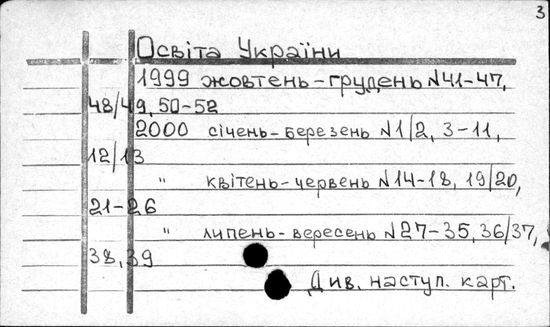 3
Освіта України
1999 жовтень-грудень №41-47,
48/49, 50-52
2000 січень-березень №1/2, 3-11,
12/13
" квітень-червень №14-18, 19/20,
21-26
" липень-вересень №27-35, 36/37,
38, 39
Див. наступ. карт.